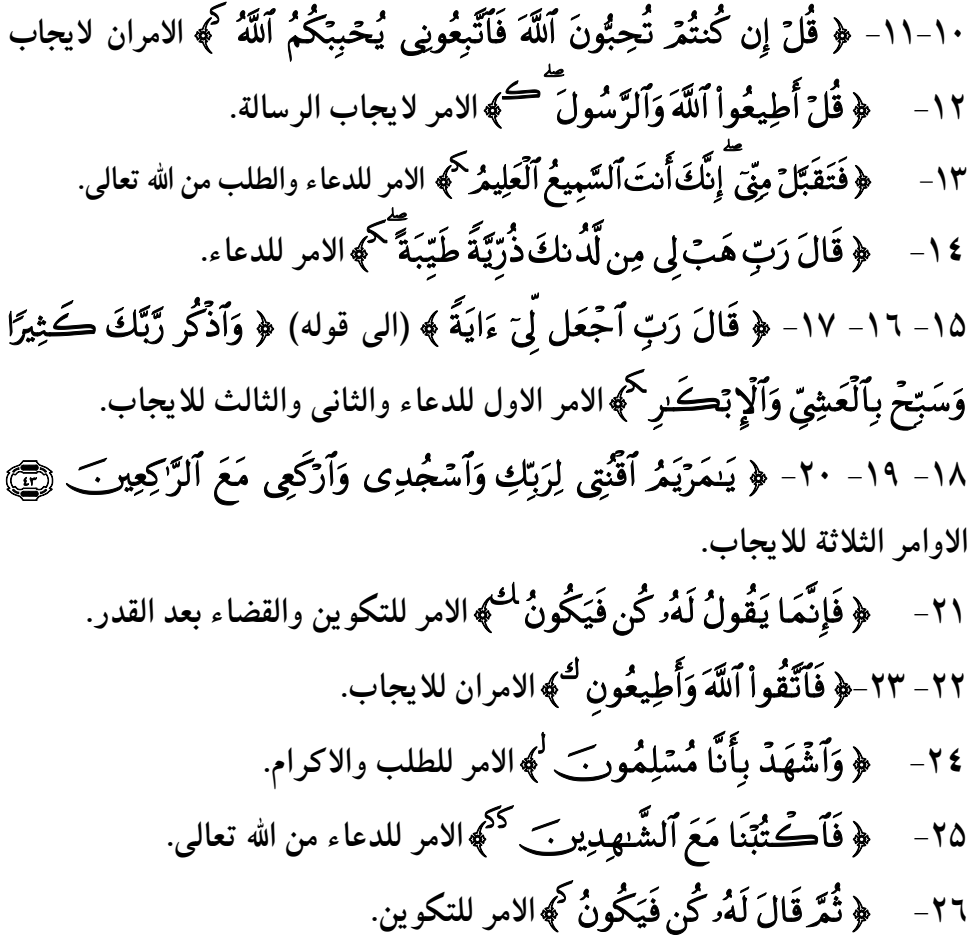 ١٠-١١- ﴿ قُلْ إِن كُنتُمْ تُحِبُّونَ ٱللَّهَ فَٱتَّبِعُونِى يُحْبِبْكُمُ ٱللَّهُ ﴾ الامران لايجاب
١٢- ﴿ قُلْ أَطِيعُواْ ٱللَّهَ وَٱلرَّسُولَ ۖ ﴾ الامر لايجاب الرسالة.
١٣- ﴿ فَتَقَبَّلْ مِنِّىٓ ۖ إِنَّكَ أَنتَ ٱلسَّمِيعُ ٱلْعَلِيمُ ﴾ الامر للدعاء والطلب من الله تعالى.
١٤- ﴿ قَالَ رَبِّ هَبْ لِى مِن لَّدُنكَ ذُرِّيَّةً طَيِّبَةً ۖ ﴾ الامر للدعاء.
١٥- ١٦- ١٧- ﴿ قَالَ رَبِّ ٱجْعَل لِّىٓ ءَايَةً ﴾ (الى قوله) ﴿ وَٱذْكُر رَّبَّكَ كَثِيرًا
وَسَبِّحْ بِٱلْعَشِىِّ وَٱلْإِبْكَٰرِ ﴾ الامر الاول للدعاء والثانى والثالث للايجاب.
١٨- ١٩- ٢٠- ﴿ يَٰمَرْيَمُ ٱقْنُتِى لِرَبِّكِ وَٱسْجُدِى وَٱرْكَعِى مَعَ ٱلرَّٰكِعِينَ ٤٣
الاوامر الثلاثة للايجاب.
٢١- ﴿ فَإِنَّمَا يَقُولُ لَهُۥ كُن فَيَكُونُ ﴾ الامر للتكوين والقضاء بعد القدر.
٢٢- ٢٣- ﴿ فَٱتَّقُواْ ٱللَّهَ وَأَطِيعُونِ ﴾ الامران للايجاب.
٢٤- ﴿ وَٱشْهَدْ بِأَنَّا مُسْلِمُونَ ﴾ الامر للطلب والاكرام.
٢٥- ﴿ فَٱكْتُبْنَا مَعَ ٱلشَّٰهِدِينَ ﴾ الامر للدعاء من الله تعالى.
٢٦- ﴿ ثُمَّ قَالَ لَهُۥ كُن فَيَكُونُ ﴾ الامر للتكوين.